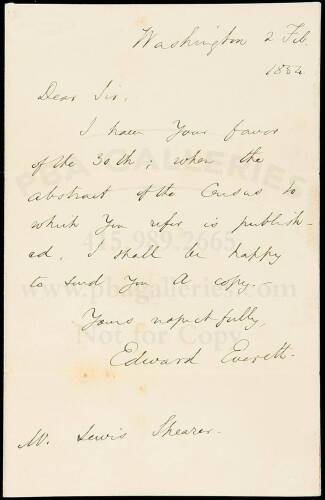 Washington 2 Feb.
1854.
Dear Sir,
I have Your favor
of the 30th; when the
abstract of the Census to
which You refer is publish-
ed, I shall be happy
to send You A copy.
Yours respectfully,
Edward Everett.
Mr. Lewis Shearer.
PBA GALLERIES
415.989.2665
www.pbagalleries.com
Not for Copy